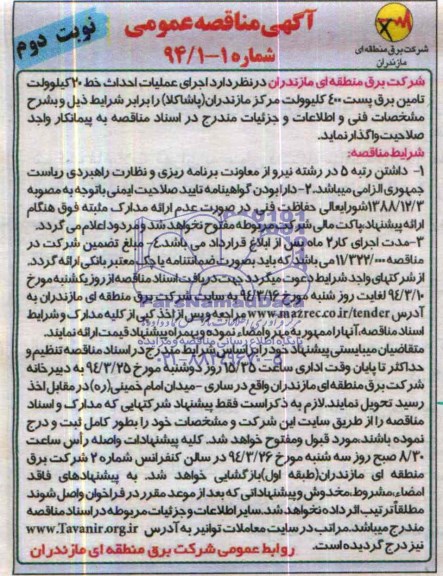 آگهی مناقصه عمومی
شماره ۱-۹۴/۱
نوبت دوم
شرکت برق منطقه ای
مازندران
شرکت برق منطقه ای مازندران در نظر دارد اجرای عملیات احداث خط ۲۰ کیلوولت
تامین برق پست ۴۰۰ کلیوولت مرکز مازندران(پاشاکلا) را برابر شرایط ذیل و بشرح
مشخصات فنی و اطلاعات و جزئیات مندرج در اسناد مناقصه به پیمانکار واجد
صلاحیت واگذار نماید.
شرایط مناقصه:
۱- داشتن رتبه ۵ در رشته نیرو از معاونت برنامه ریزی و نظارت راهبردی ریاست
جمهوری الزامی میباشد. ۲-دارا بودن گواهینامه تایید صلاحیت ایمنی باتوجه به مصوبه
۱۳۸۸/۱۲/۳ شورایعالی حفاظت فنی، در صورت عدم ارائه مدارک مثبته فوق هنگام
ارائه پیشنهاد، پاکت مالی شرکت مربوطه مفتوح نخواهد شد و مردود اعلام می گردد.
۳-مدت اجرای کار ۲ ماه پس از ابلاغ قرارداد می باشد. ۴- مبلغ تضمین شرکت در
مناقصه ۱۱/۳۲۲/۰۰۰ می باشد که باید بصورت ضمانتنامه یا چک معتبر بانکی ارائه گردد.
از شرکتهای واجد شرایط دعوت میگردد جهت دریافت اسناد مناقصه از روز یکشنبه مورخ
۹۴/۳/۱۰ لغایت روز شنبه مورخ ۹۴/۳/۱۶ به سایت شرکت برق منطقه ای مازندران به
آدرس www.mazrec.co.ir/tender مراجعه و پس از اخذ کپی از کلیه مدارک و شرایط
اسناد مناقصه، آنها را ممهور به مهر و امضاء نموده و بهمراه پیشنهاد قیمت ارائه نمایند.
متقاضیان میبایستی پیشنهاد خود را بر اساس شرایط مندرج در اسناد مناقصه تنظیم و
حداکثر تا پایان وقت اداری ساعت ۱۵/۳۵ روز دوشنبه مورخ ۹۴/۳/۲۵ به دبیرخانه
شرکت برق منطقه ای مازندران واقع در ساری - میدان امام خمینی(ره) در مقابل اخذ
رسید تحویل نمایند. لازم به ذکر است فقط پیشنهاد شرکتهایی که مدارک و اسناد
مناقصه را از طریق سایت این شرکت و مشخصات خود را بطور کامل ثبت و درج
نموده باشند، مورد قبول ومفتوح خواهد شد. کلیه پیشنهادات واصله رأس ساعت
۸/۳۰ صبح روز سه شنبه مورخ ۹۴/۳/۲۶ در سالن کنفرانس شماره ۲ شرکت برق
منطقه ای مازندران(طبقه اول) بازگشایی خواهد شد. به پیشنهادهای فاقد
امضاء، مشروط، مخدوش و پیشنهاداتی که بعد از موعد مقرر در فراخوان واصل شوند
مطلقاً ترتیب اثر داده نخواهد شد. سایر اطلاعات و جزئیات مربوطه در اسناد مناقصه
مندرج میباشد. مراتب در سایت معاملات توانیر به آدرس www.Tavanir.org.ir
نیز درج گردیده است.
روابط عمومی شرکت برق منطقه ای مازندران